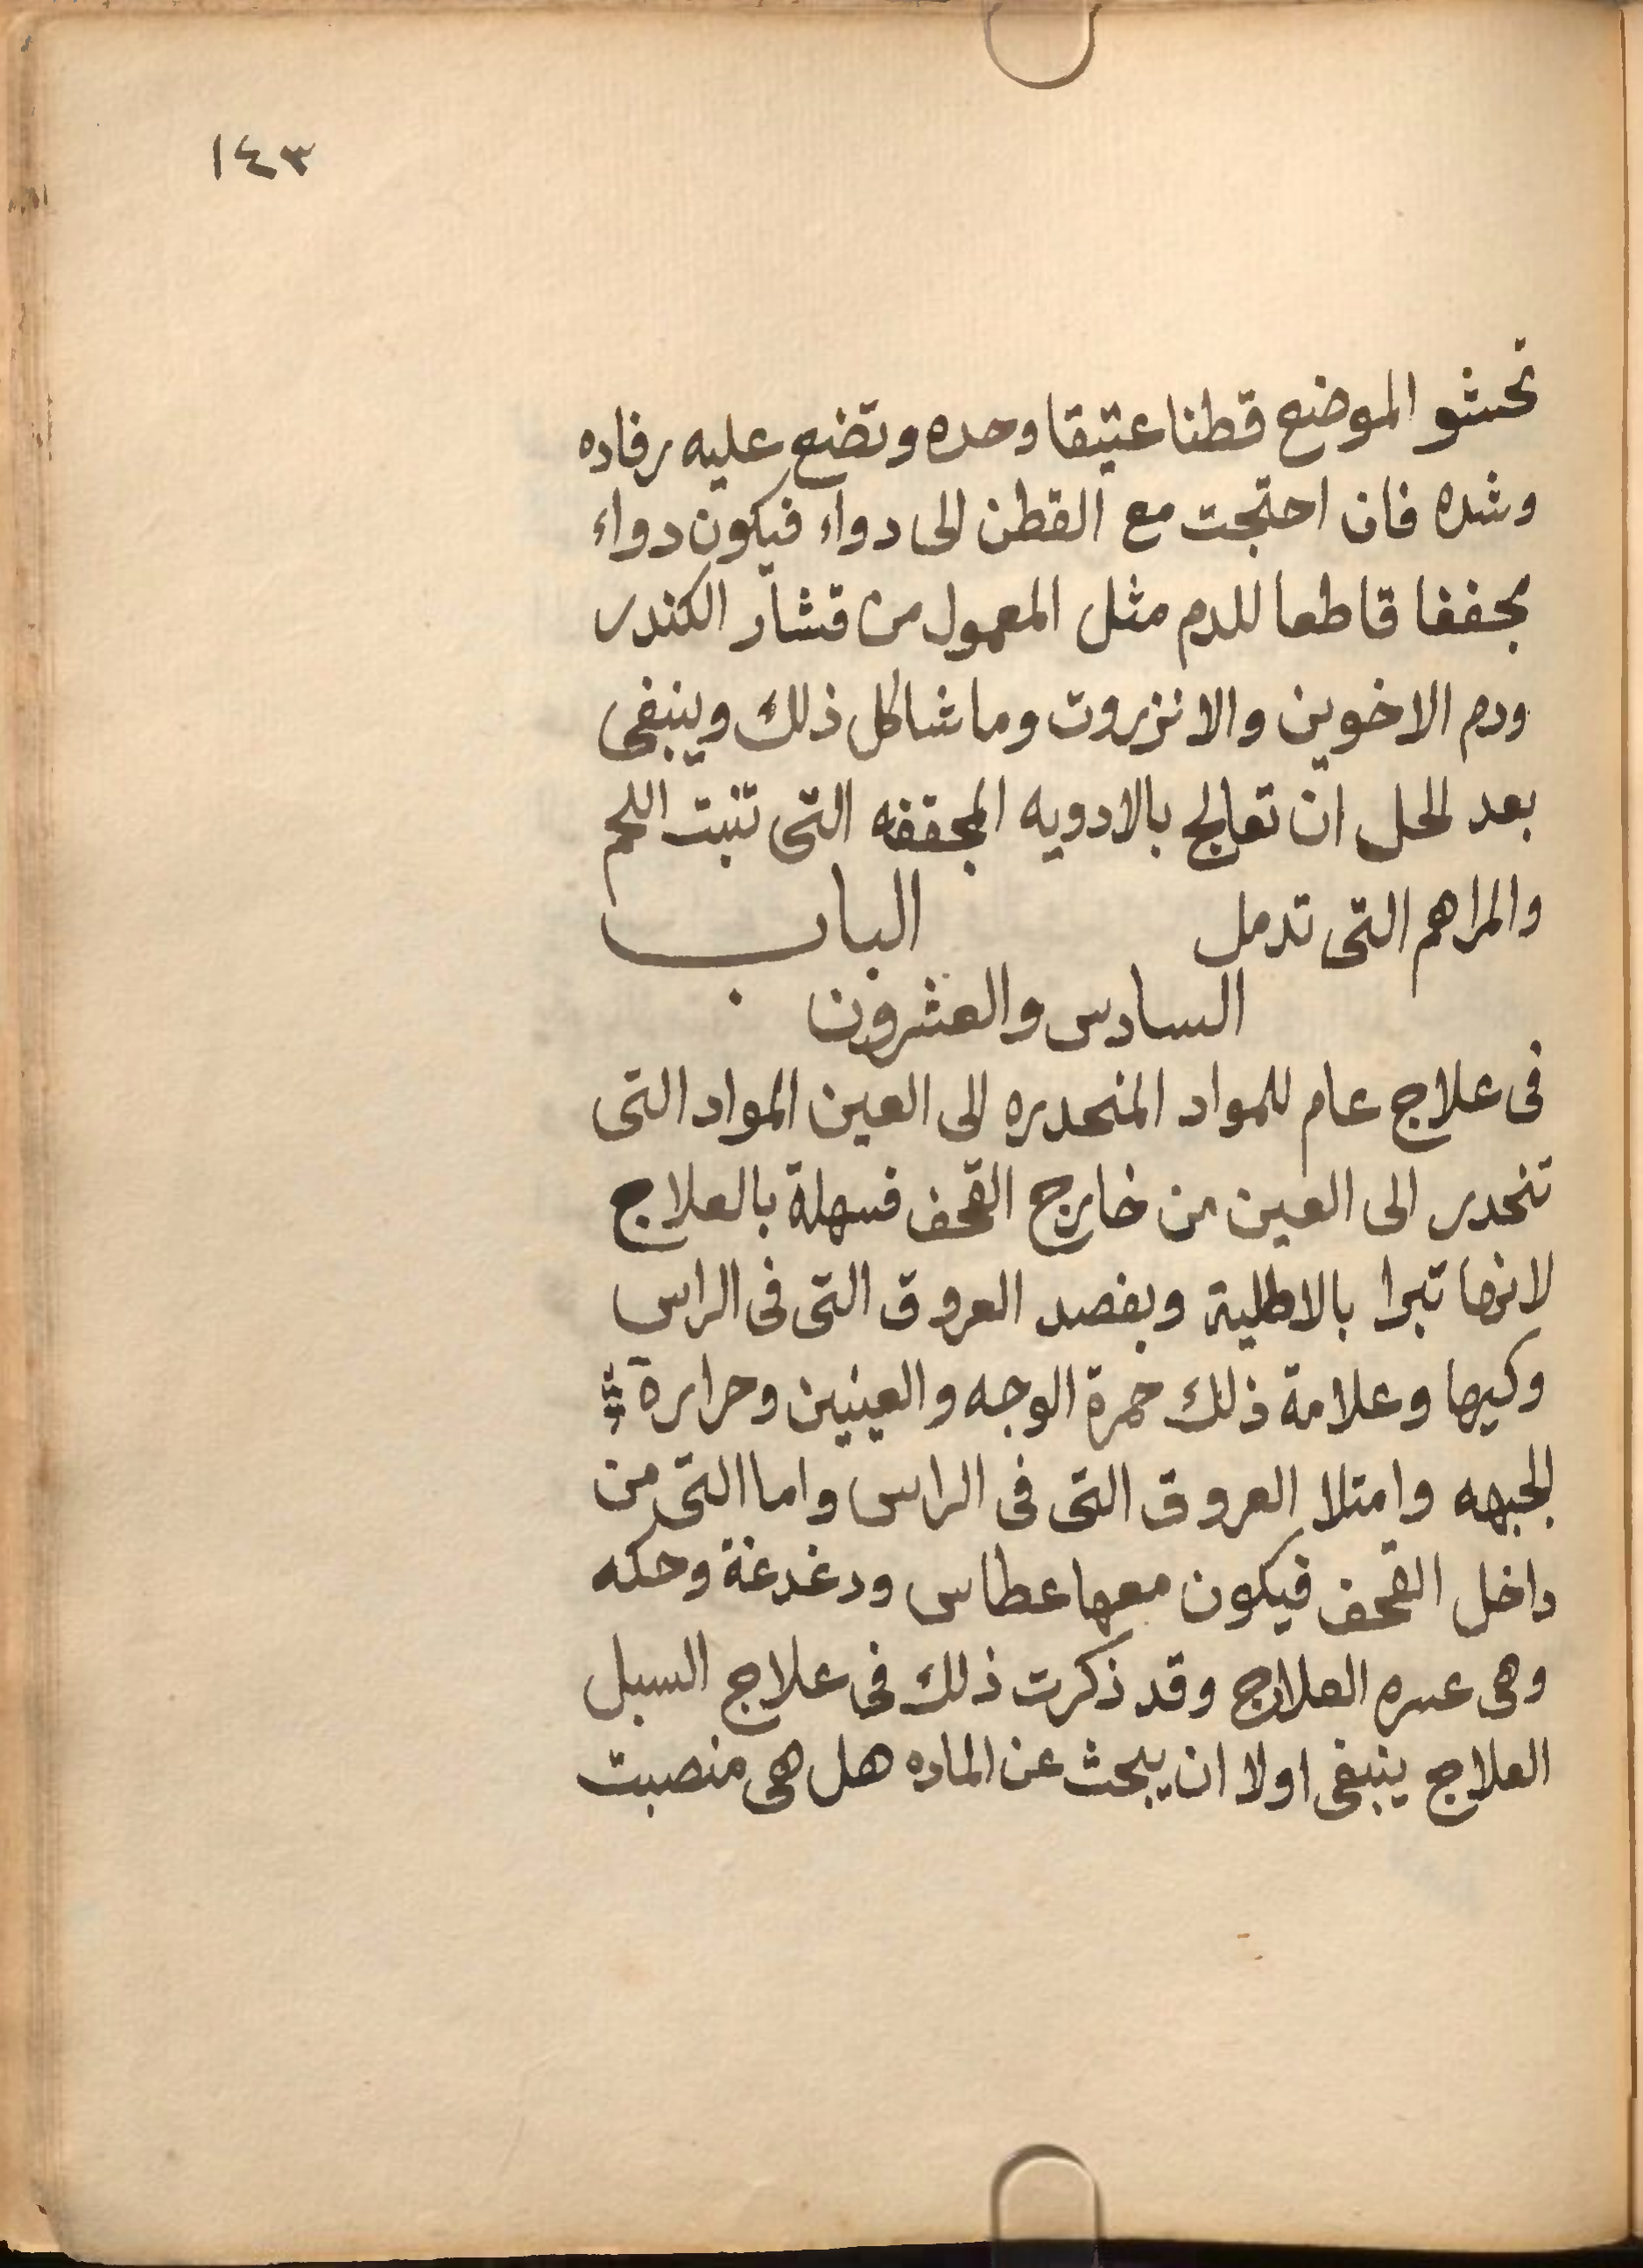 ١٤٣
تحشو الموضع قطنا عتيقا وحده وتضع عليه رفاده
وشده فان احتجت مع القطن الى دواء فيكون دواء
مجففا قاطعا للدم مثل المعمول من قشار الكندر
ودم الاخوين والانزروت وما شاكل ذلك وينبغى
بعد الحل ان تعالج بالادويه المجففه التى تنبت اللحم
والمراهم التى تدمل الباب
السادس والعشرون
فى علاج عام للمواد المنحدره الى العين المواد التى
تنحدر الى العين من خارج القحف فسهلة بالعلاج
لانها تبرا بالاطلية وبفصد العروق التى فى الراس
وكيها وعلامة ذلك حمرة الوجه والعينين وحرارة
الجبهه وامتلا العروق التى فى الراس واما التى من
داخل القحف فيكون معها عطاس ودغدغة وحكه
وهى عسره العلاج وقد ذكرت ذلك فى علاج السبل
العلاج ينبغى اولا ان يبحث عن الماده هل هى منصبت